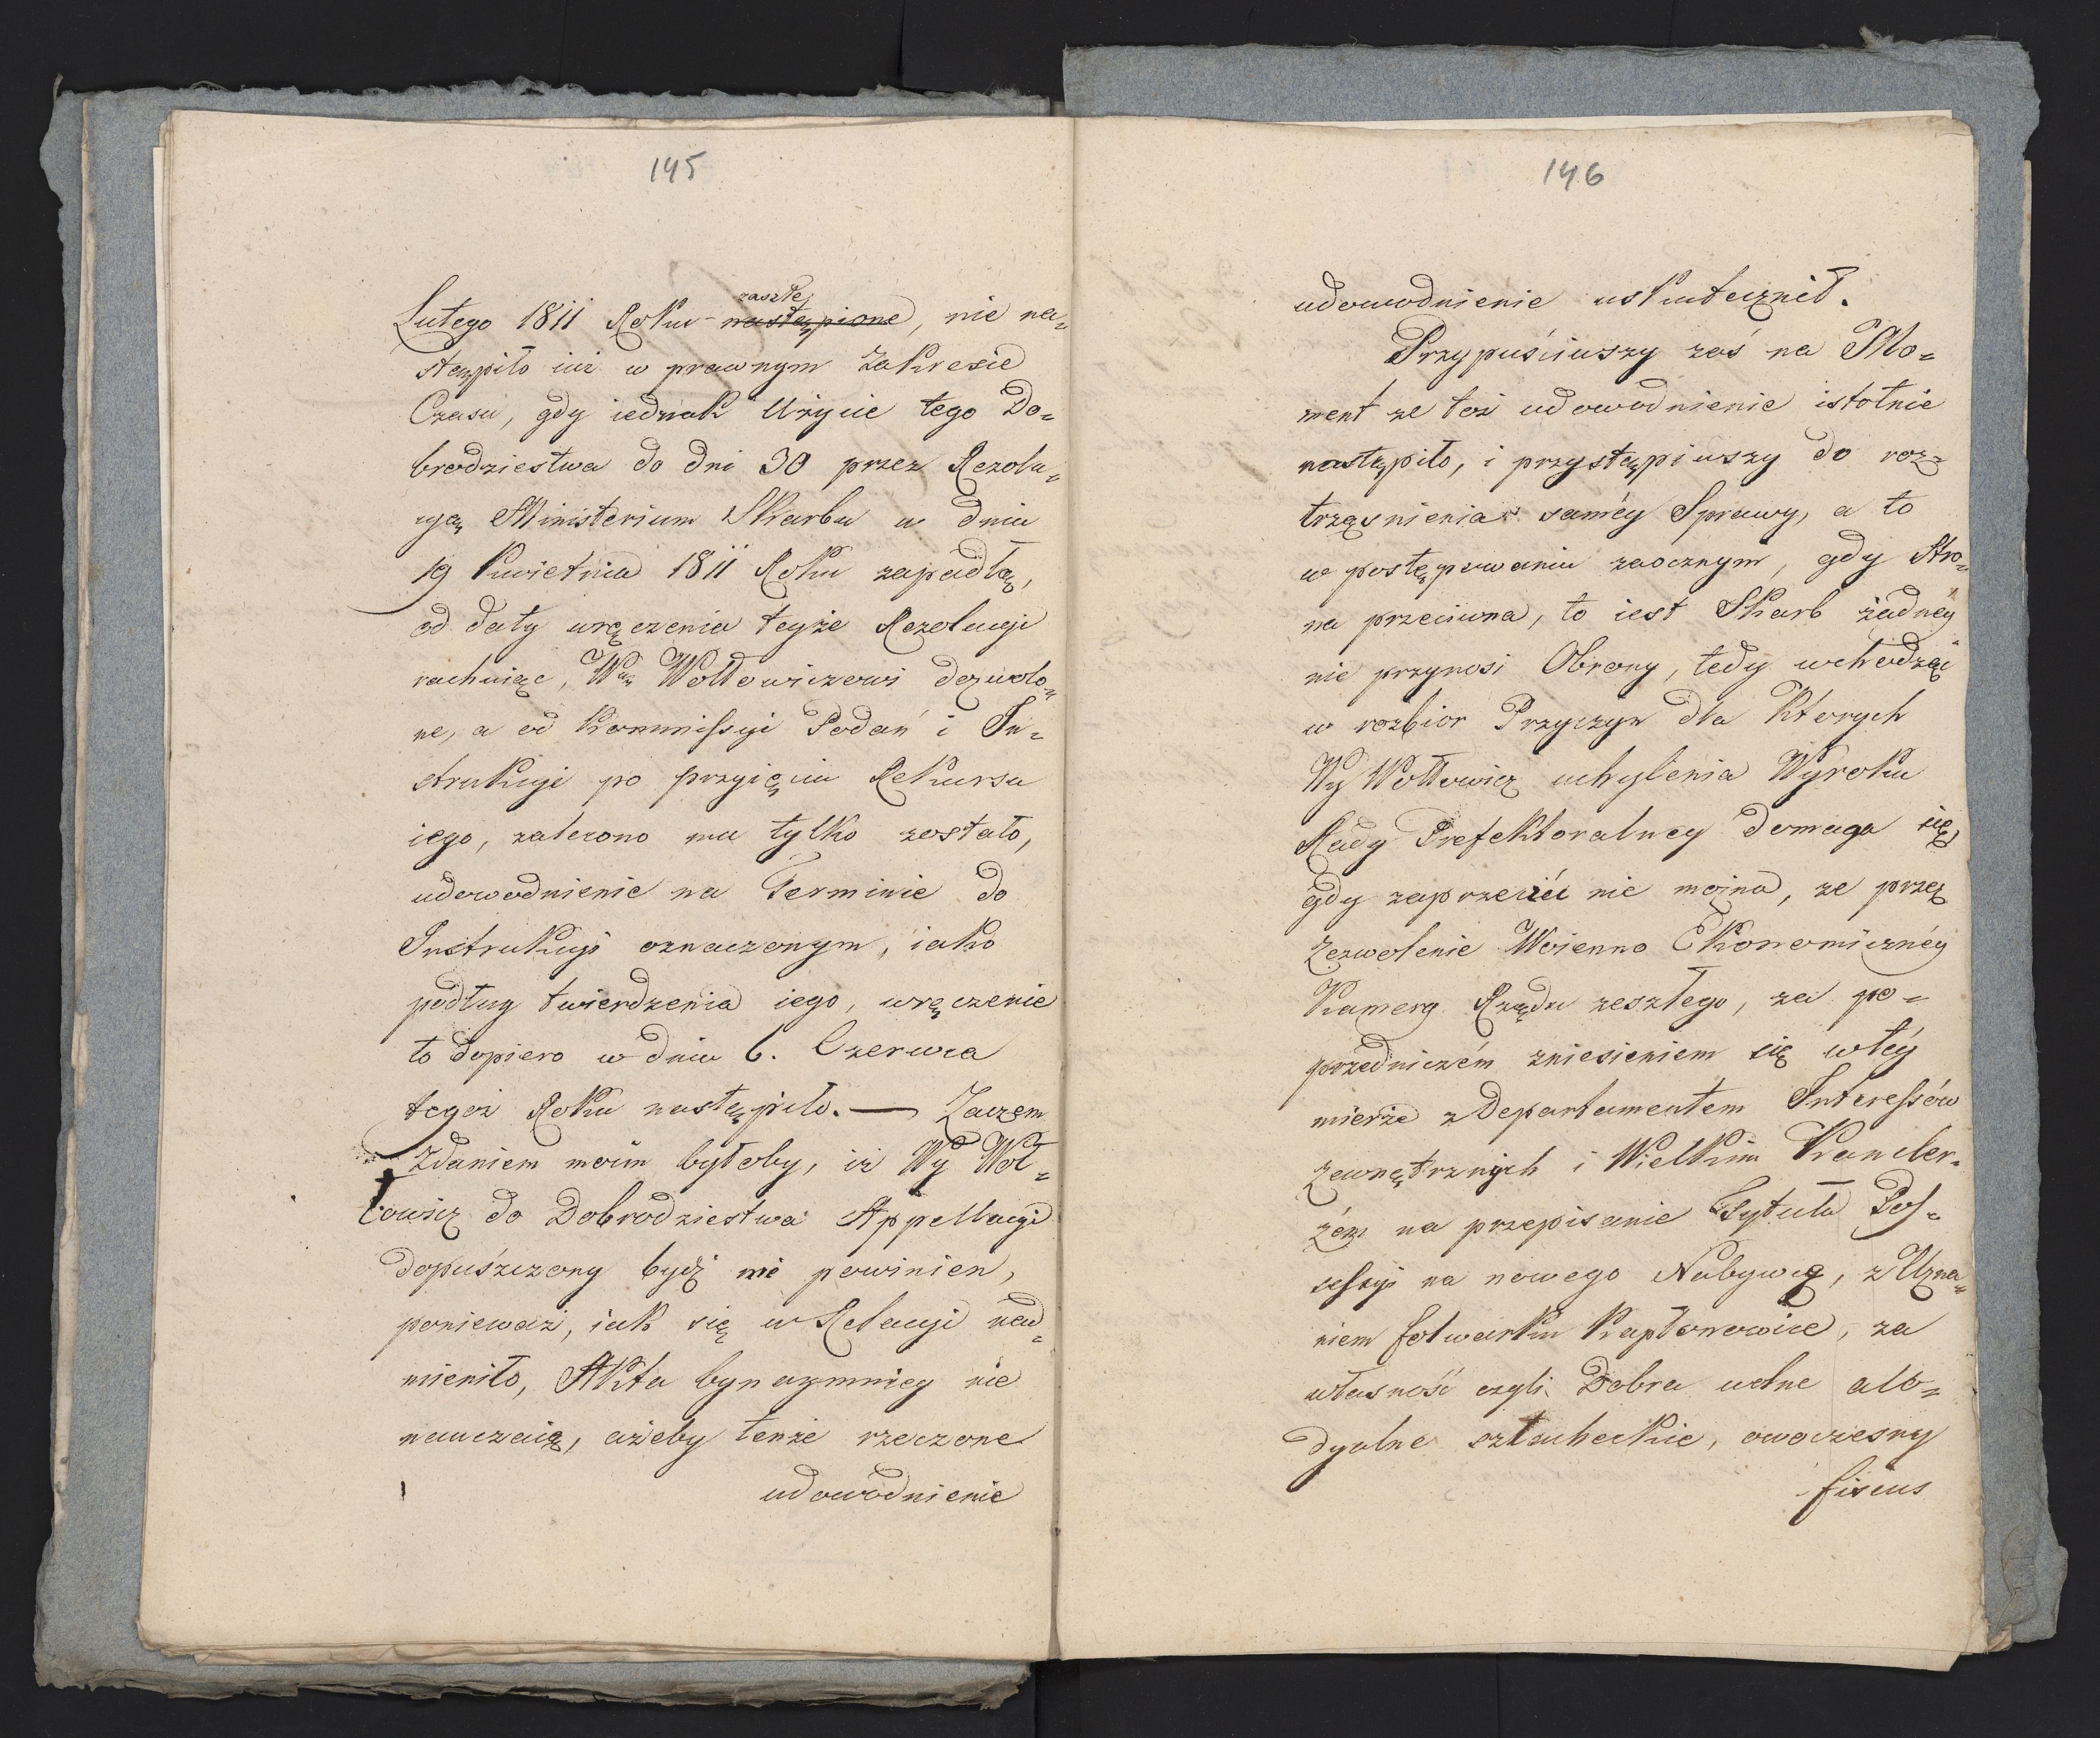 145
Lutego 1811 Roku zaszłe nastąpione, nie na=
stąpiło iuż w prawnym Zakresie
Czasu, gdy iednak Użycie tego Do=
brodziestwa do dni 30 przez Rezolu=
cyą Ministerium Skarbu w dniu
19 Kwietnia 1811 Roku zapadłą,
od daty wręczenia teyże Rezolucyi
rachuiąc, Wu Wołłowiczowi dozwolo=
ne, a od Kommissyi Podań i In=
strukcyi po przyięciu Rekursu
iego, zalecono mu tylko zostało,
udowodnienie na Terminie do
Instrukcyi oznaczonym, iako
podług twierdzenia iego, wręczenie
to dopiero w dniu 6. Czerwca
tegoż Roku nastąpiło. — Zaczem
Zdaniem moim byłoby, iż Wy Woł=
łowicz do Dobrodziestwa Appellacyi
dopuszczony bydź nie powinien,
ponieważ, iak się w Relacyi nad=
mieniło, Akta bynaymniey nie
nauczaią, ażeby tenże rzeczone
udowodnienie
146
udowodnienie uskutecznił.
Przypuściwszy zaś na Mo=
ment że toż udowodnienie istotnie
nastąpiło, i przystąpiwszy do roz=
trząśnienia saméy Sprawy, a to
w postępowaniu zaocznym, gdy Stro=
na przeciwna, to iest Skarb żadnéy
nie przynosi Obrony, tedy wchodząc
w rozbior Przyczyn dla Ktorych
Wy Wołłowicz uchylenia Wyroku
Rady Prefektoralney domaga się,
gdy zaprzeczić nie można, że przez
Zezwolenie Woienno Ekonomicznéy
Kamery Rządu zeszłego, za po=
przedniczém zniesieniem się w téy
mierze z Departamentem Interessów
Zewnętrznych i Wielkim Kancler=
zém na przepisanie Tytułu Pos=
sessyi na nowego Nabywcę, z Uzna=
niem folwarku Kapłonowice, za
własność czyli Dobra wolne allo=
dyalne szlacheckie, owoczesny
fiscus